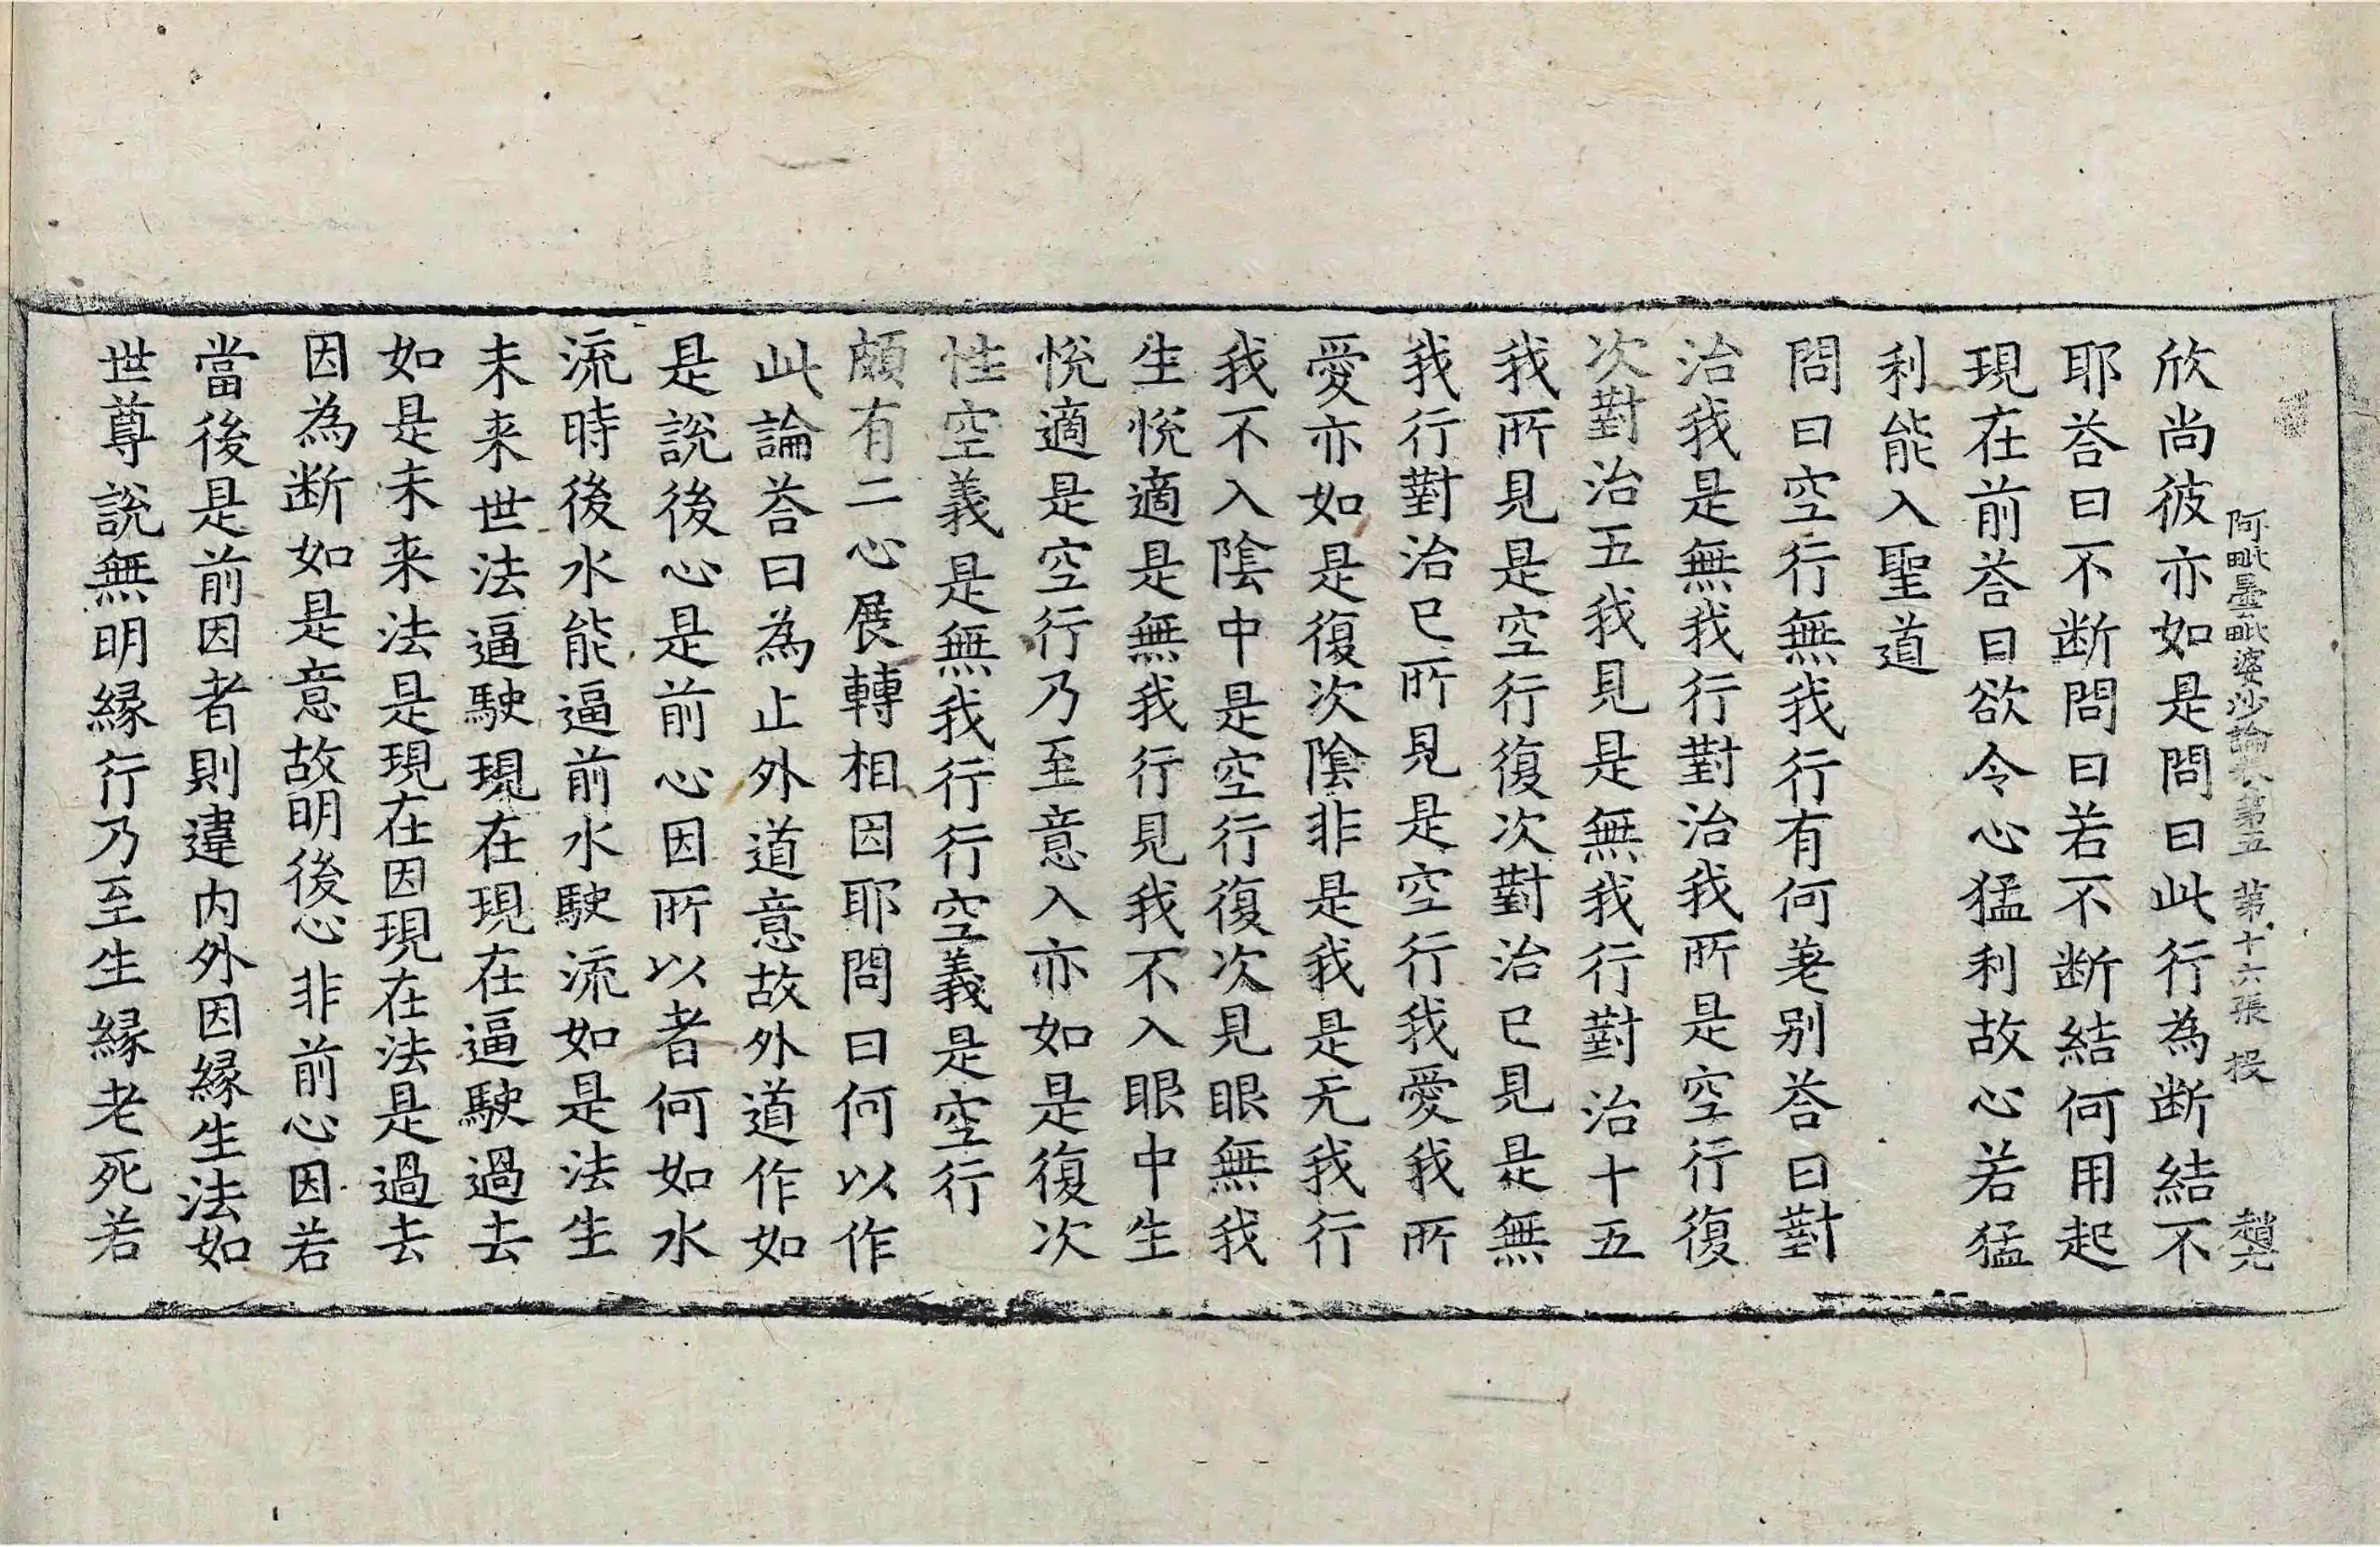 阿毗曇毗婆沙論卷第五 第十六張 投 趙元
欣尚彼亦如是問曰此行為断結不
耶荅曰不断問曰若不断結何用起
現在前荅曰欲令心猛利故心若猛
利能入聖道
問曰空行無我行有何差别荅曰對
治我是無我行對治我所是空行復
次對治五我見是無我行對治十五
我所見是空行復次對治已見是無
我行對治已所見是空行我愛我所
愛亦如是復次陰非是我是无我行
我不入陰中是空行復次見眼無我
生悅適是無我行見我不入眼中生
悅適是空行乃至意入亦如是復次
性空義是無我行行空義是空行
頗有二心展轉相因耶問曰何以作
此論荅曰為止外道意故外道作如
是說後心是前心因所以者何如水
流時後水能逼前水駛流如是法生
未来世法逼駛現在現在逼駛過去
如是未来法是現在因現在法是過去
因為断如是意故明後心非前心因若
當後是前因者則違内外因緣生法如
世尊說無明緣行乃至生緣老死若